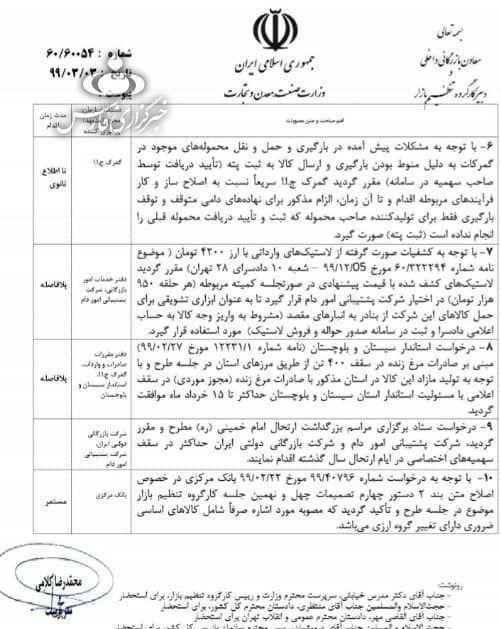 بسمه تعالی
معاون بازرگانی داخلی
و
دبیر کارگروه تنظیم بازار
جمهوری اسلامی ایران
وزارت صنعت، معدن و تجارت
شماره : ۶۰/۶۰۰۵۴
تاریخ : ۹۹/۰۳/۰۳
پیوست :
خبرگزاری فارس
اهم مباحث و متن مصوبات
مدت زمان
اقدام
۶- با توجه به مشکلات پیش آمده در بارگیری و حمل و نقل محموله‌های موجود در
گمرکات به دلیل منوط بودن بارگیری و ارسال کالا به ثبت پته (تأیید دریافت توسط
صاحب سهمیه در سامانه) مقرر گردید گمرک ج.ا.ا سریعاً نسبت به اصلاح ساز و کار
فرآیندهای مربوطه اقدام و تا آن زمان، الزام مذکور برای نهاده‌های دامی متوقف و توقف
بارگیری فقط برای تولیدکننده صاحب محموله که ثبت و تأیید دریافت محموله قبلی را
انجام نداده است (ثبت پته) صورت گیرد.
گمرک ج.ا.ا
تا اطلاع
ثانوی
۷- با توجه به کشفیات صورت گرفته از لاستیک‌های وارداتی با ارز ۴۲۰۰ تومان ( موضوع
نامه شماره ۶۰/۳۲۲۲۹۴ مورخ 99/12/05 – شعبه ۱۰ دادسرای ۲۸ تهران) مقرر گردید
لاستیک‌های کشف شده با قیمت پیشنهادی در صورتجلسه کمیته مربوطه (هر حلقه ۹۵۰
هزار تومان) در اختیار شرکت پشتیبانی امور دام قرار گیرد تا به عنوان ابزاری تشویقی برای
حمل کالاهای این شرکت از بنادر به انبارهای مقصد (مشروط به واریز وجه کالا به حساب
اعلامی دادسرا و ثبت در سامانه صدور حواله و فروش لاستیک) مورد استفاده قرار گیرد.
دفتر خدمات امور
بازرگانی، شرکت
پشتیبانی امور دام
بلافاصله
۸- درخواست استاندار سیستان و بلوچستان (نامه شماره ۱۲۲۳۱/۱ مورخ ۹۹/۰۲/۲۷)
مبنی بر صادرات مرغ زنده در سقف ۴۰۰ تن از طریق مرزهای استان در جلسه طرح و با
توجه به تولید مازاد این کالا در استان مذکور با صادرات مرغ زنده (مجوز موردی) در سقف
اعلامی با مسئولیت استاندار استان سیستان و بلوچستان حداکثر تا ۱۵ خرداد ماه موافقت
گردید.
دفتر مقررات
صادرات و واردات،
گمرک ج.ا.ا،
استاندار سیستان و
بلوچستان
بلافاصله
۹- درخواست ستاد برگزاری مراسم بزرگداشت ارتحال امام خمینی (ره) مطرح و مقرر
گردید، شرکت پشتیبانی امور دام و شرکت بازرگانی دولتی ایران حداکثر در سقف
سهمیه‌های اختصاصی در ایام ارتحال سال گذشته اقدام نمایند.
شرکت بازرگانی
دولتی ایران،
شرکت پشتیبانی
امور دام
۱۰- با توجه به درخواست شماره ۹۹/۴۰۷۹۶ مورخ ۹۹/۰۲/۲۲ بانک مرکزی در خصوص
اصلاح متن بند ۲ دستور چهارم تصمیمات چهل و نهمین جلسه کارگروه تنظیم بازار
موضوع در جلسه طرح و تأکید گردید که مصوبه مورد اشاره صرفاً شامل کالاهای اساسی
ضروری دارای تغییر گروه ارزی می‌باشد.
بانک مرکزی
مستمر
محمدرضا کلامی
رونوشت:
- جناب آقای دکتر مدرس خیابانی، سرپرست محترم وزارت و رییس کارگروه تنظیم بازار، برای استحضار
- حجت‌الاسلام والمسلمین جناب آقای منتظری، دادستان محترم کل کشور، برای استحضار
- جناب آقای القاصی مهر، دادستان محترم عمومی و انقلاب تهران برای استحضار